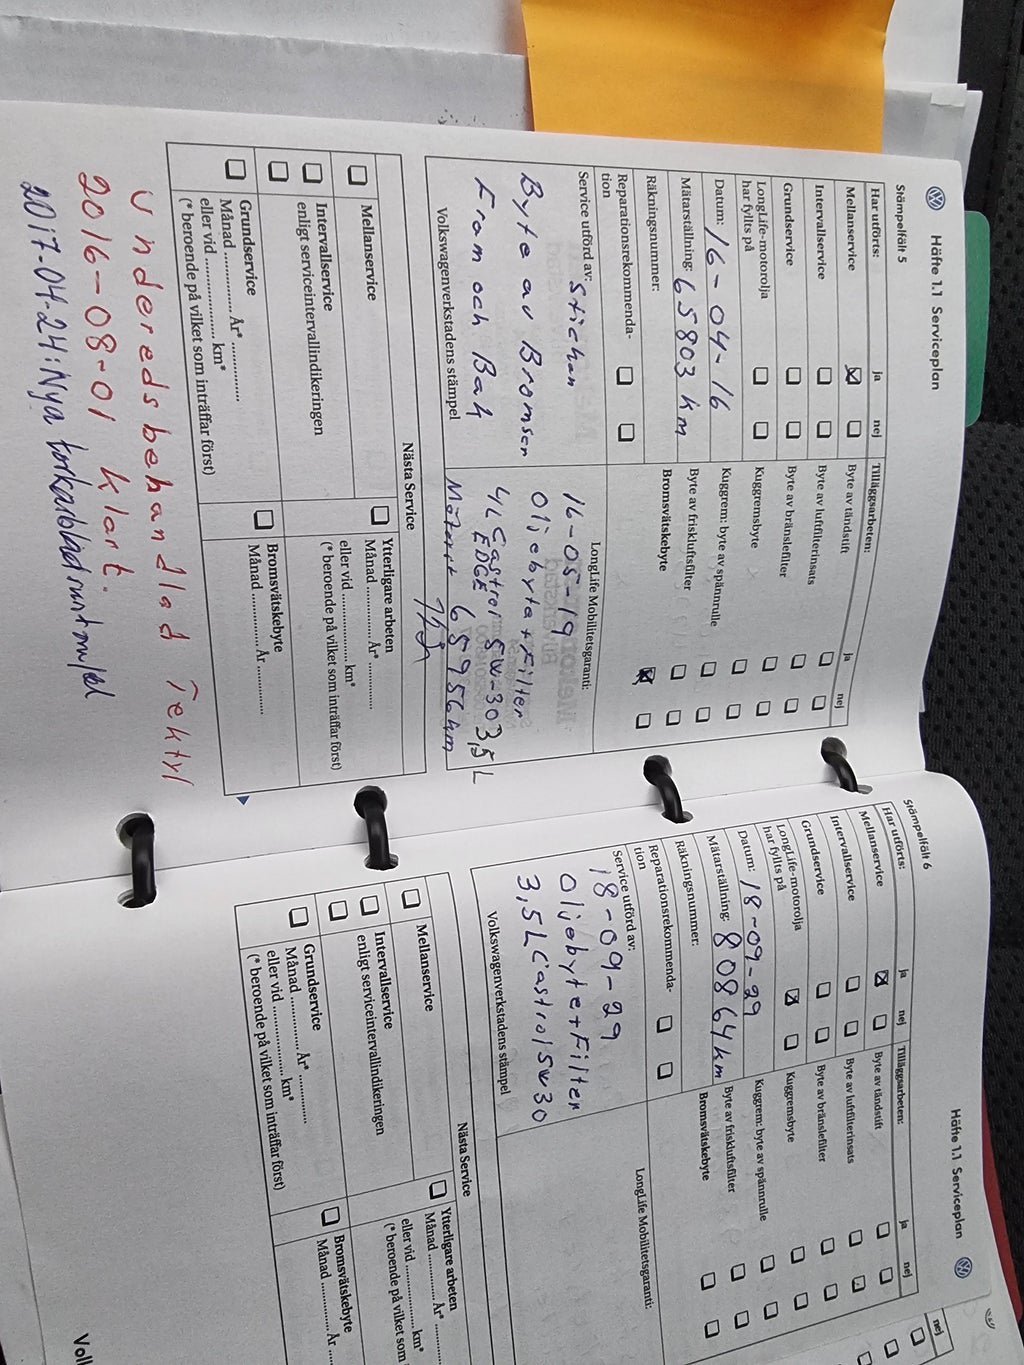 Häfte 1.1 Serviceplan
Stämpelfält 5
Har utförts: ja nej
Mellanservice
Intervallservice
Grundservice
LongLife-motorolja
har fyllts på
Datum: 16-04-16
Mätarställning: 65803 km
Räkningsnummer:
Reparationsrekommenda-
tion
Service utförd av:
Byte av Bromsar
Fram och Bak
Volkswagenverkstadens stämpel
Tilläggsarbeten: ja nej
Byte av tändstift
Byte av luftfilterinsats
Byte av bränslefilter
Kuggremsbyte
Kuggrem: byte av spännrulle
Byte av friskluftsfilter
Bromsvätskebyte
LongLife Mobilitetsgaranti:
16-05-19
Oljebyte+Filter
4L Castrol 5W-30 3,5L
EDGE
65956km
Nästa Service
Mellanservice
Intervallservice
enligt serviceintervallindikeringen
Grundservice
Månad .......... År* ..........
eller vid .......... km*
(* beroende på vilket som inträffar först)
Ytterligare arbeten
Månad .......... År* ..........
eller vid .......... km*
(* beroende på vilket som inträffar först)
Bromsvätskebyte
Månad .......... År ..........
Underedsbehandlad Tektyl
2016-08-01 klart.
2017-04-24: Nya torkarblad
Häfte 1.1 Serviceplan
Stämpelfält 6
Har utförts: ja nej
Mellanservice
Intervallservice
Grundservice
LongLife-motorolja
har fyllts på
Datum: 18-09-29
Mätarställning: 80864km
Räkningsnummer:
Reparationsrekommenda-
tion
Service utförd av:
18-09-29
Oljebyte+Filter
3,5L Castrol 5W30
Volkswagenverkstadens stämpel
Tilläggsarbeten: ja nej
Byte av tändstift
Byte av luftfilterinsats
Byte av bränslefilter
Kuggremsbyte
Kuggrem: byte av spännrulle
Byte av friskluftsfilter
Bromsvätskebyte
LongLife Mobilitetsgaranti:
Nästa Service
Mellanservice
Intervallservice
enligt serviceintervallindikeringen
Grundservice
Månad .......... År* ..........
eller vid .......... km*
(* beroende på vilket som inträffar först)
Ytterligare arbeten
Månad .......... År* ..........
eller vid .......... km*
(* beroende på vilket som
Bromsvätskebyte
Månad .......... År ..........
nej